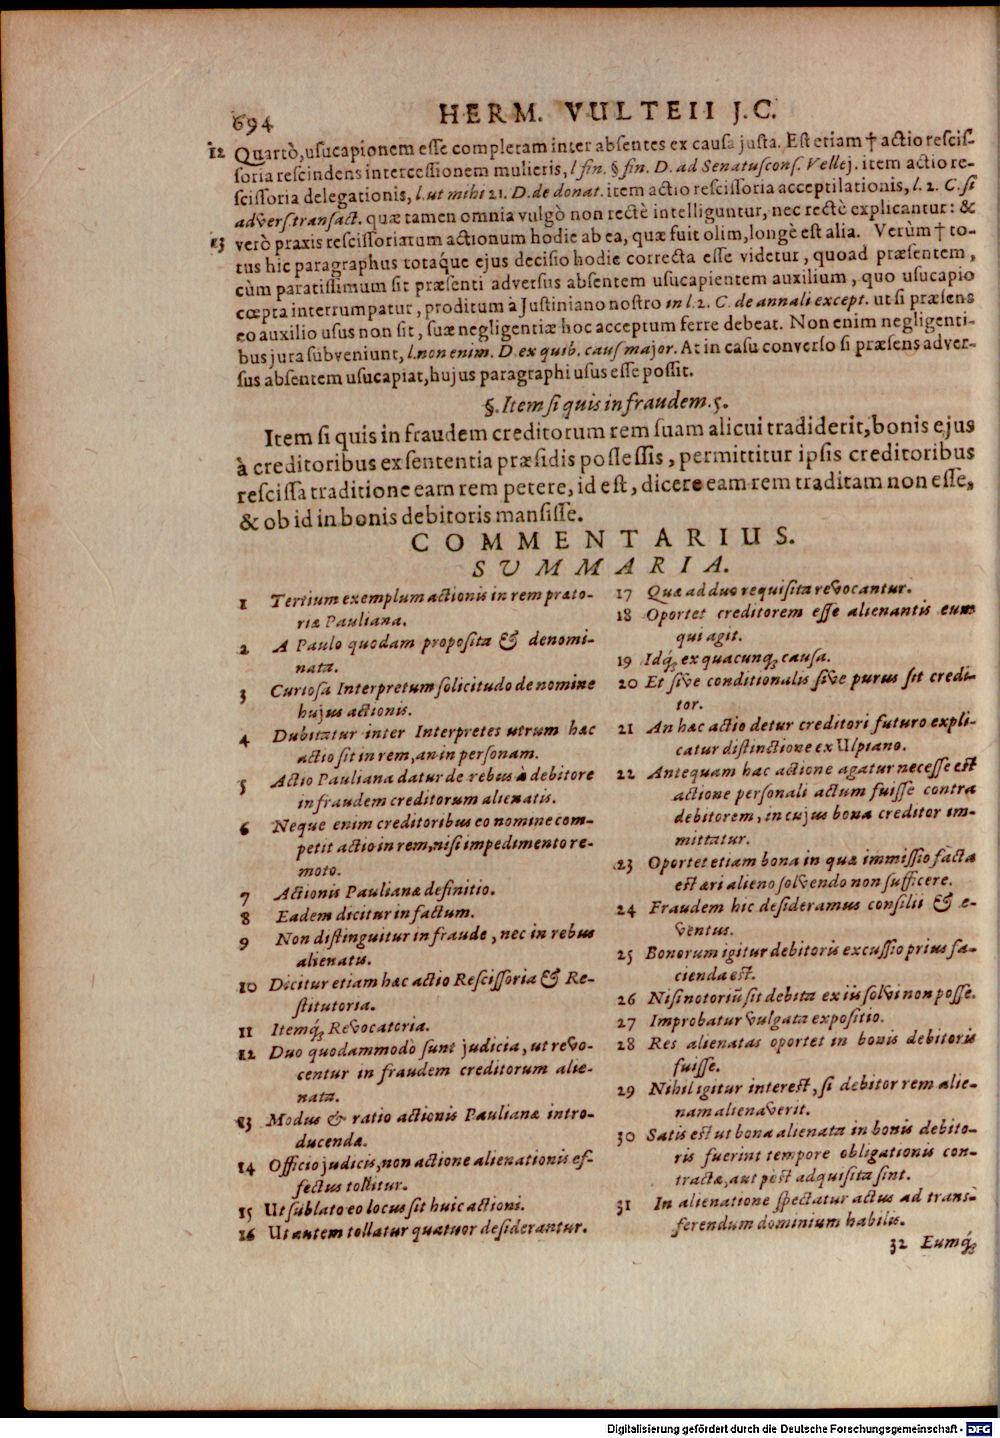 694 HERM. VULTEII J.C.
12 Quartò, uſucapionem eſſe completam inter abſentes ex cauſa juſta. Eſt etiam † actio reſciſ-
ſoria reſcindens interceſſionem mulieris, l fin. § fin. D. ad Senatuſconſ. Vellej. item actio re-
ſciſſoria delegationis, l. ut mihi 21. D. de donat. item actio reſciſſoria acceptilationis, l. 2. C. ſi
adverſ. tranſact. quæ tamen omnia vulgò non rectè intelliguntur, nec rectè explicantur: &
13 verò praxis reſciſſoriarum actionum hodie ab ea, quæ fuit olim, longè eſt alia. Verùm † to-
tus hic paragraphus totaq́ue ejus deciſio hodie correcta eſſe videtur, quoad præſentem,
cùm paratiſſimum ſit præſenti adverſus abſentem uſucapientem auxilium, quo uſucapio
cœpta interrumpatur, proditum à Juſtiniano noſtro in l. 2. C. de annali except. ut ſi præſens
eo auxilio uſus non ſit, ſuæ negligentiæ hoc acceptum ferre debeat. Non enim negligenti-
bus jura ſubveniunt, l. non enim. D. ex quib. cauſ major. At in caſu converſo ſi præſens adver-
ſus abſentem uſucapiat, hujus paragraphi uſus eſſe poſſit.
§. Item ſi quis in fraudem. 5.
Item ſi quis in fraudem creditorum rem ſuam alicui tradiderit, bonis ejus
à creditoribus ex ſententia præſidis poſſeſſis, permittitur ipſis creditoribus
reſciſſa traditione eam rem petere, id eſt, dicere eam rem traditam non eſſe,
& ob id in bonis debitoris manſiſſe.
COMMENTARIUS.
SUMMARIA.
1 Tertium exemplum actionis in rem præto-
riæ Pauliana.
2 A Paulo quodam propoſita & denomi-
nata.
3 Curioſa Interpretum ſolicitudo de nomine
hujus actionis.
4 Dubitatur inter Interpretes utrum hæc
actio ſit in rem, an in perſonam.
5 Actio Pauliana datur de rebus à debitore
in fraudem creditorum alienatis.
6 Neque enim creditoribus eo nomine com-
petit actio in rem, niſi impedimento re-
moto.
7 Actionis Paulianæ definitio.
8 Eadem dicitur in factum.
9 Non diſtinguitur in fraude, nec in rebus
alienatis.
10 Dicitur etiam hæc actio Reſciſſoria & Re-
ſtitutoria.
11 Itemq́ꝫ Revocatoria.
12 Duo quodammodò ſunt judicia, ut revo-
centur in fraudem creditorum alie-
nata.
13 Modus & ratio actionis Paulianæ intro-
ducendæ.
14 Officio judicis, non actione alienationis ef-
fectus tollitur.
15 Ut ſublato eo locus ſit huic actioni.
16 Ut autem tollatur quatuor deſiderantur.
17 Quæ ad duo requiſita revocantur.
18 Oportet creditorem eſſe alienantis eum
qui agit.
19 Idq́ꝫ ex quacunqꝫ cauſa.
20 Et ſive conditionalis ſive purus ſit credi-
tor.
21 An hæc actio detur creditori futuro expli-
catur diſtinctione ex Ulpiano.
22 Antequam hac actione agatur neceſſe eſt
actione perſonali actum fuiſſe contra
debitorem, in cujus bona creditor im-
mittatur.
23 Oportet etiam bona in quæ immiſſio facta
eſt æri alieno ſolvendo non ſufficere.
24 Fraudem hic deſideramus conſilii & e-
ventus.
25 Bonorum igitur debitoris excuſſio prius fa-
cienda eſt.
26 Niſi notoriũ ſit debita ex iis ſolvi non poſſe.
27 Improbatur vulgata expoſitio.
28 Res alienatas oportet in bonis debitoris
fuiſſe.
29 Nihil igitur intereſt, ſi debitor rem alie-
nam alienaverit.
30 Satis eſt ut bona alienata in bonis debito-
ris fuerint tempore obligationis con-
tractæ, aut pòſt adquiſita ſint.
31 In alienatione ſpectatur actus ad tranſ-
ferendum dominium habilis.
32 Eumq́ꝫ
Digitalisierung gefördert durch die Deutsche Forschungsgemeinschaft - DFG